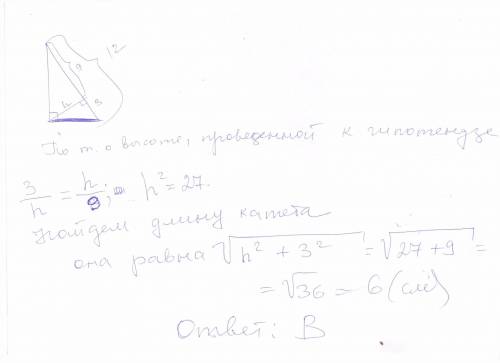 12
9
h
3
По т. о высоте, проведенной к гипотенузе
3/h = h/9; h² = 27.
Найдем длину катета
она равна √(h² + 3²) = √(27 + 9) =
= √36 = 6 (см)
Ответ: В